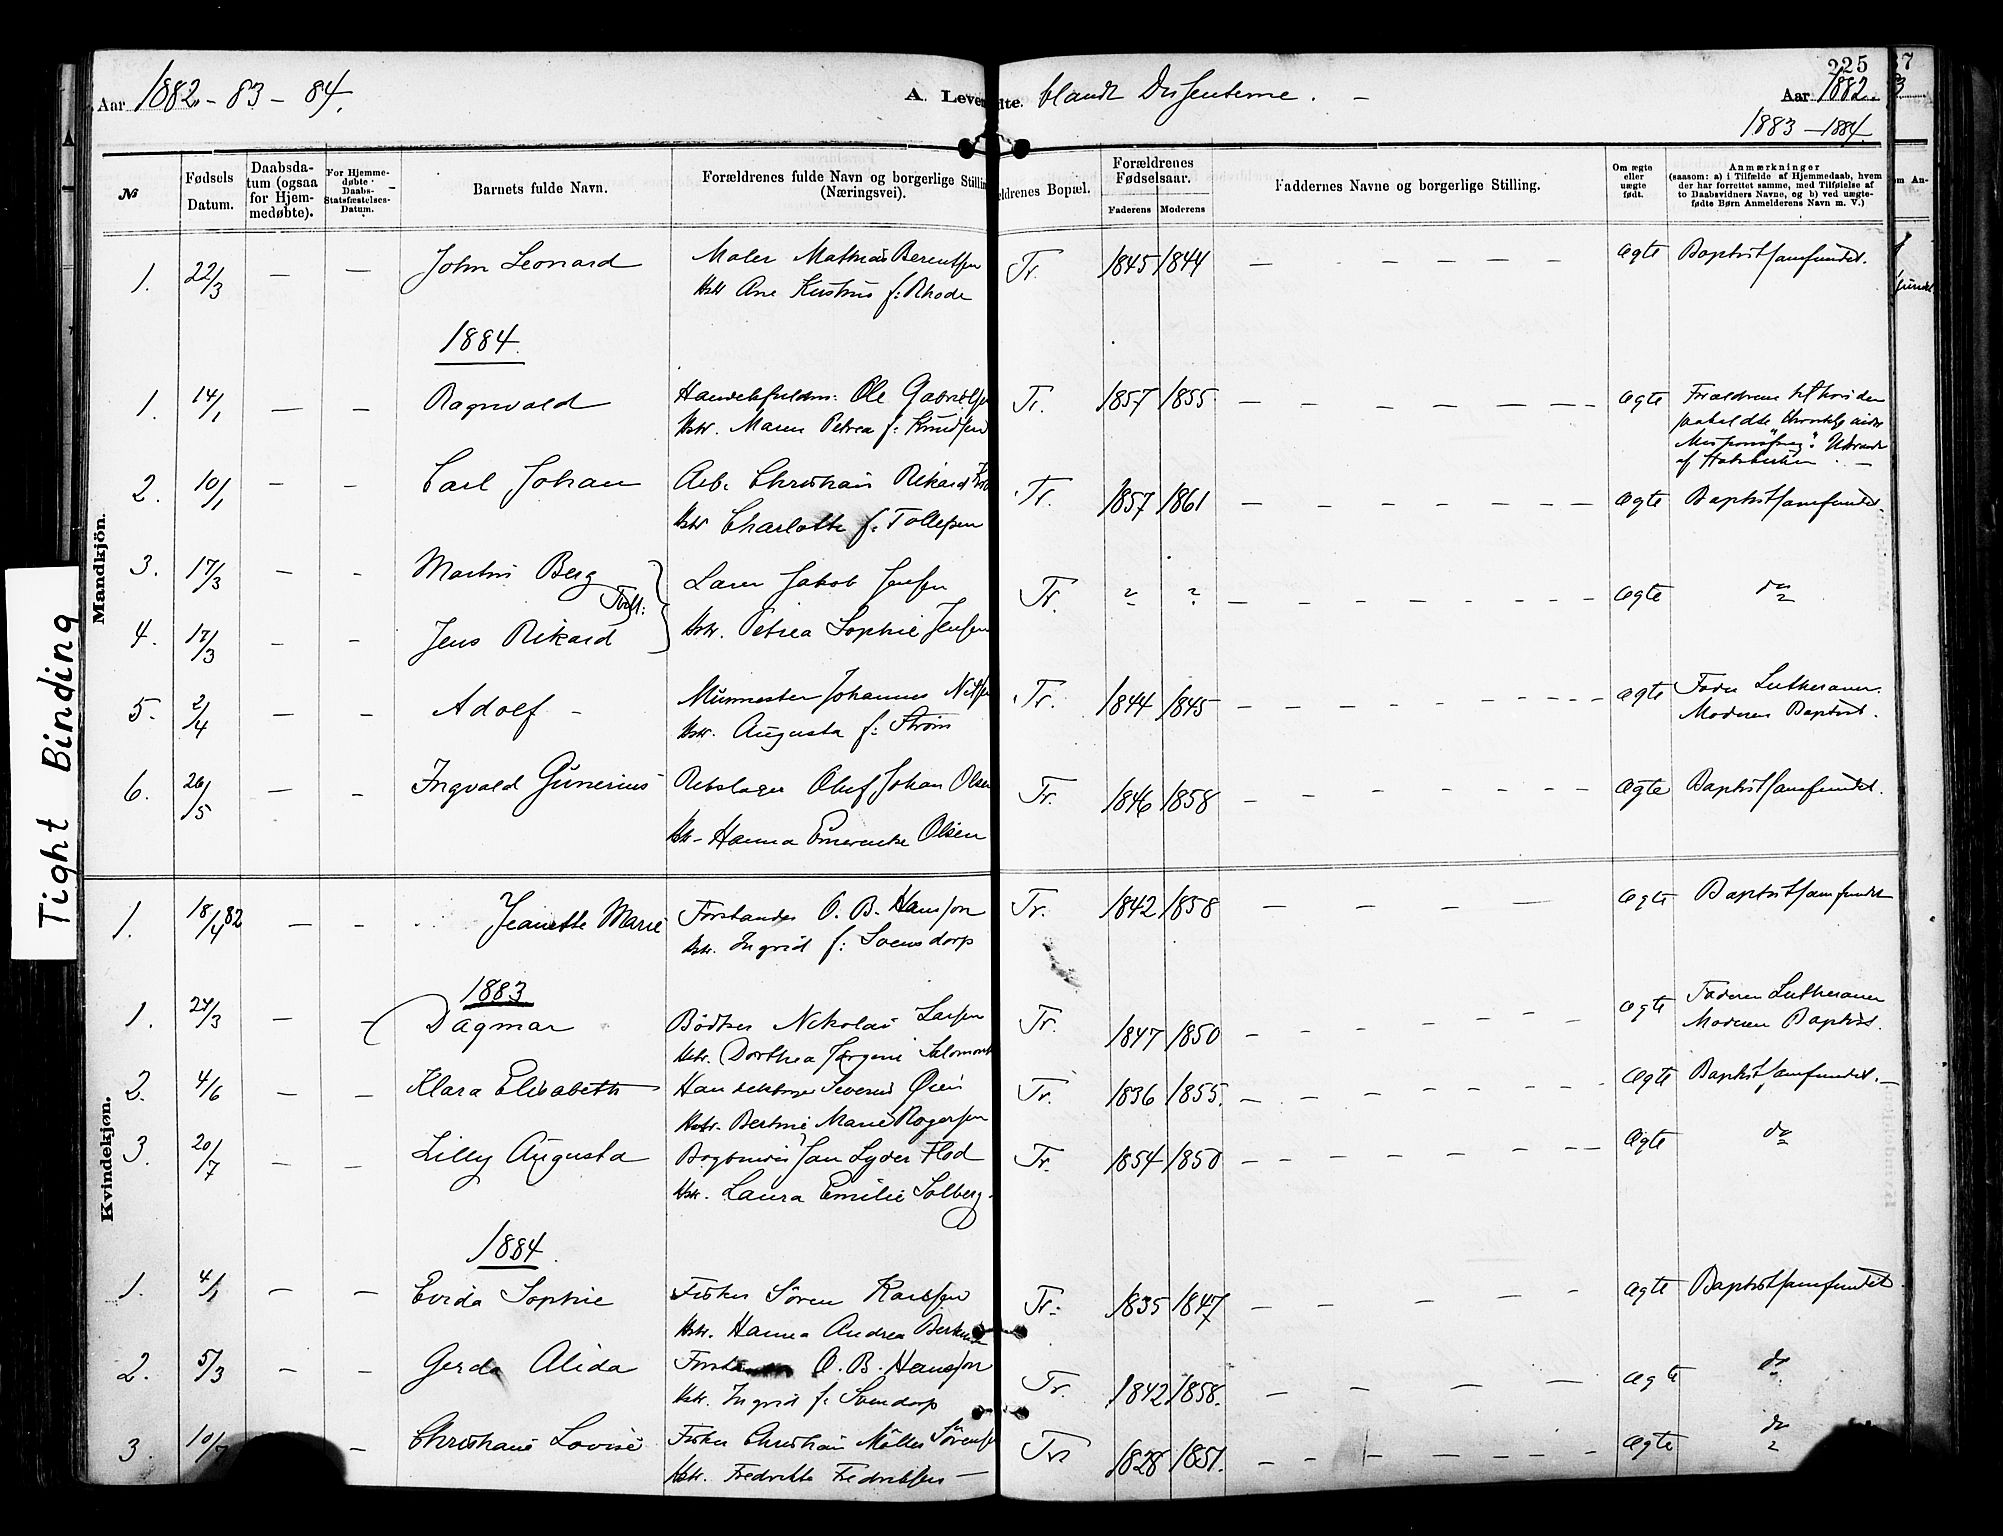 Aar 1882 - 83 - 84.
A. Leven dte. blandt Dissenterne. -
225
Aar 1882.
1883 - 1884.
№
Fødsels Datum.
Daabsda-
tum (ogsaa
for Hjem-
medøbte).
For Hjemme-
døbte
Daabs-
Statsfæstelses-
Datum.
Barnets fulde Navn.
Forældrenes fulde Navn og borgerlige Stillin
(Næringsvei).
ldrenes Bopæl.
Forældrenes
Fødselsaar.
Faderens Moderens
Faddernes Navne og borgerlige Stilling.
Om ægte
eller
uægte
født.
Anmærkninger
(saasom: a) i Tilfælde af Hjemmedaab, hvem
der har forrettet samme, med Tilføielse af
to Daabsvidners Navne, og b) ved uægte-
fødte Børn Anmelderens Navn m. V.)
Mandkjön.
1. 22/3 — — John Leonard Maler Mathias Berentsen Tr. 1845 1844 ægte Baptistsamfundet.
Hstr Ane f: Rhode
1884.
1. 14/1 — — Ragnvald Ole Gabrielsen Tr. 1857 1855 ægte Forældrene
Hstr. Maren Petrea f: Knudsen
2. 10/1 — — Carl Johan Arb. Christian Rikard Tr. 1857 1861 ægte Baptistsamfundet.
Hstr Charlotte f: Tollefsen
3. 17/3 — — Martin Berg Lars Jakob Jensen Tr. ægte do
Tvill:
4. 17/3 — — Jens Rikard Hstr. Petrea Sophie Jensen
5. 2/4 — — Adolf — Murmester Johannes Tr. 1844 1845 ægte Fader Lutheraner.
Hstr. Augusta f: Strøm Moderen Baptist.
6. 26/5 — — Ingvald Gunerius Rebslager Oluf Johan Olsen Tr. 1846 1858 ægte Baptistsamfundet.
Hstr. Hanna Emerentse Olsen
Kvindekjøn.
1. 18/4 82 — — Jeanette Marie Forstander O. B. Hansson Tr. 1842 1858 ægte Baptistsamfundet
Hstr. Ingrid f: Svensdorp
1883
1. /3 — — Dagmar Bødker Nikolai Larsen Tr. 1847 1850 ægte Faderen Lutheraner
Hstr. Dorthea Jørgine Moderen Baptist.
2. 4/6 — — Klara Elisabeth Severin Øien Tr. 1836 1855. ægte Baptistsamfundet. —
Hstr. Bertine Marie Rogersen
3. 20/7 — — Lilly Augusta Jan Lyder Flod Tr. 1854 1850 ægte do
Hstr. Laura Emilie Solberg.
1884.
1. 4/1 — — Evida Sophie Fisker Søren Tr. 1835 1847 ægte Baptistsamfundet.
Hstr. Hanna Andrea
2. 5/3 — — Gerda Alida O. B. Hansson Tr. 1842 1858. ægte do
Hstr. Ingrid f: Svensdorp
3. 10/7 — Christiane Lovise Fisker Christian Møller Sørensen 1828 1851. ægte do
Hstr. Fredrikke Fredriksen —
Tight Binding